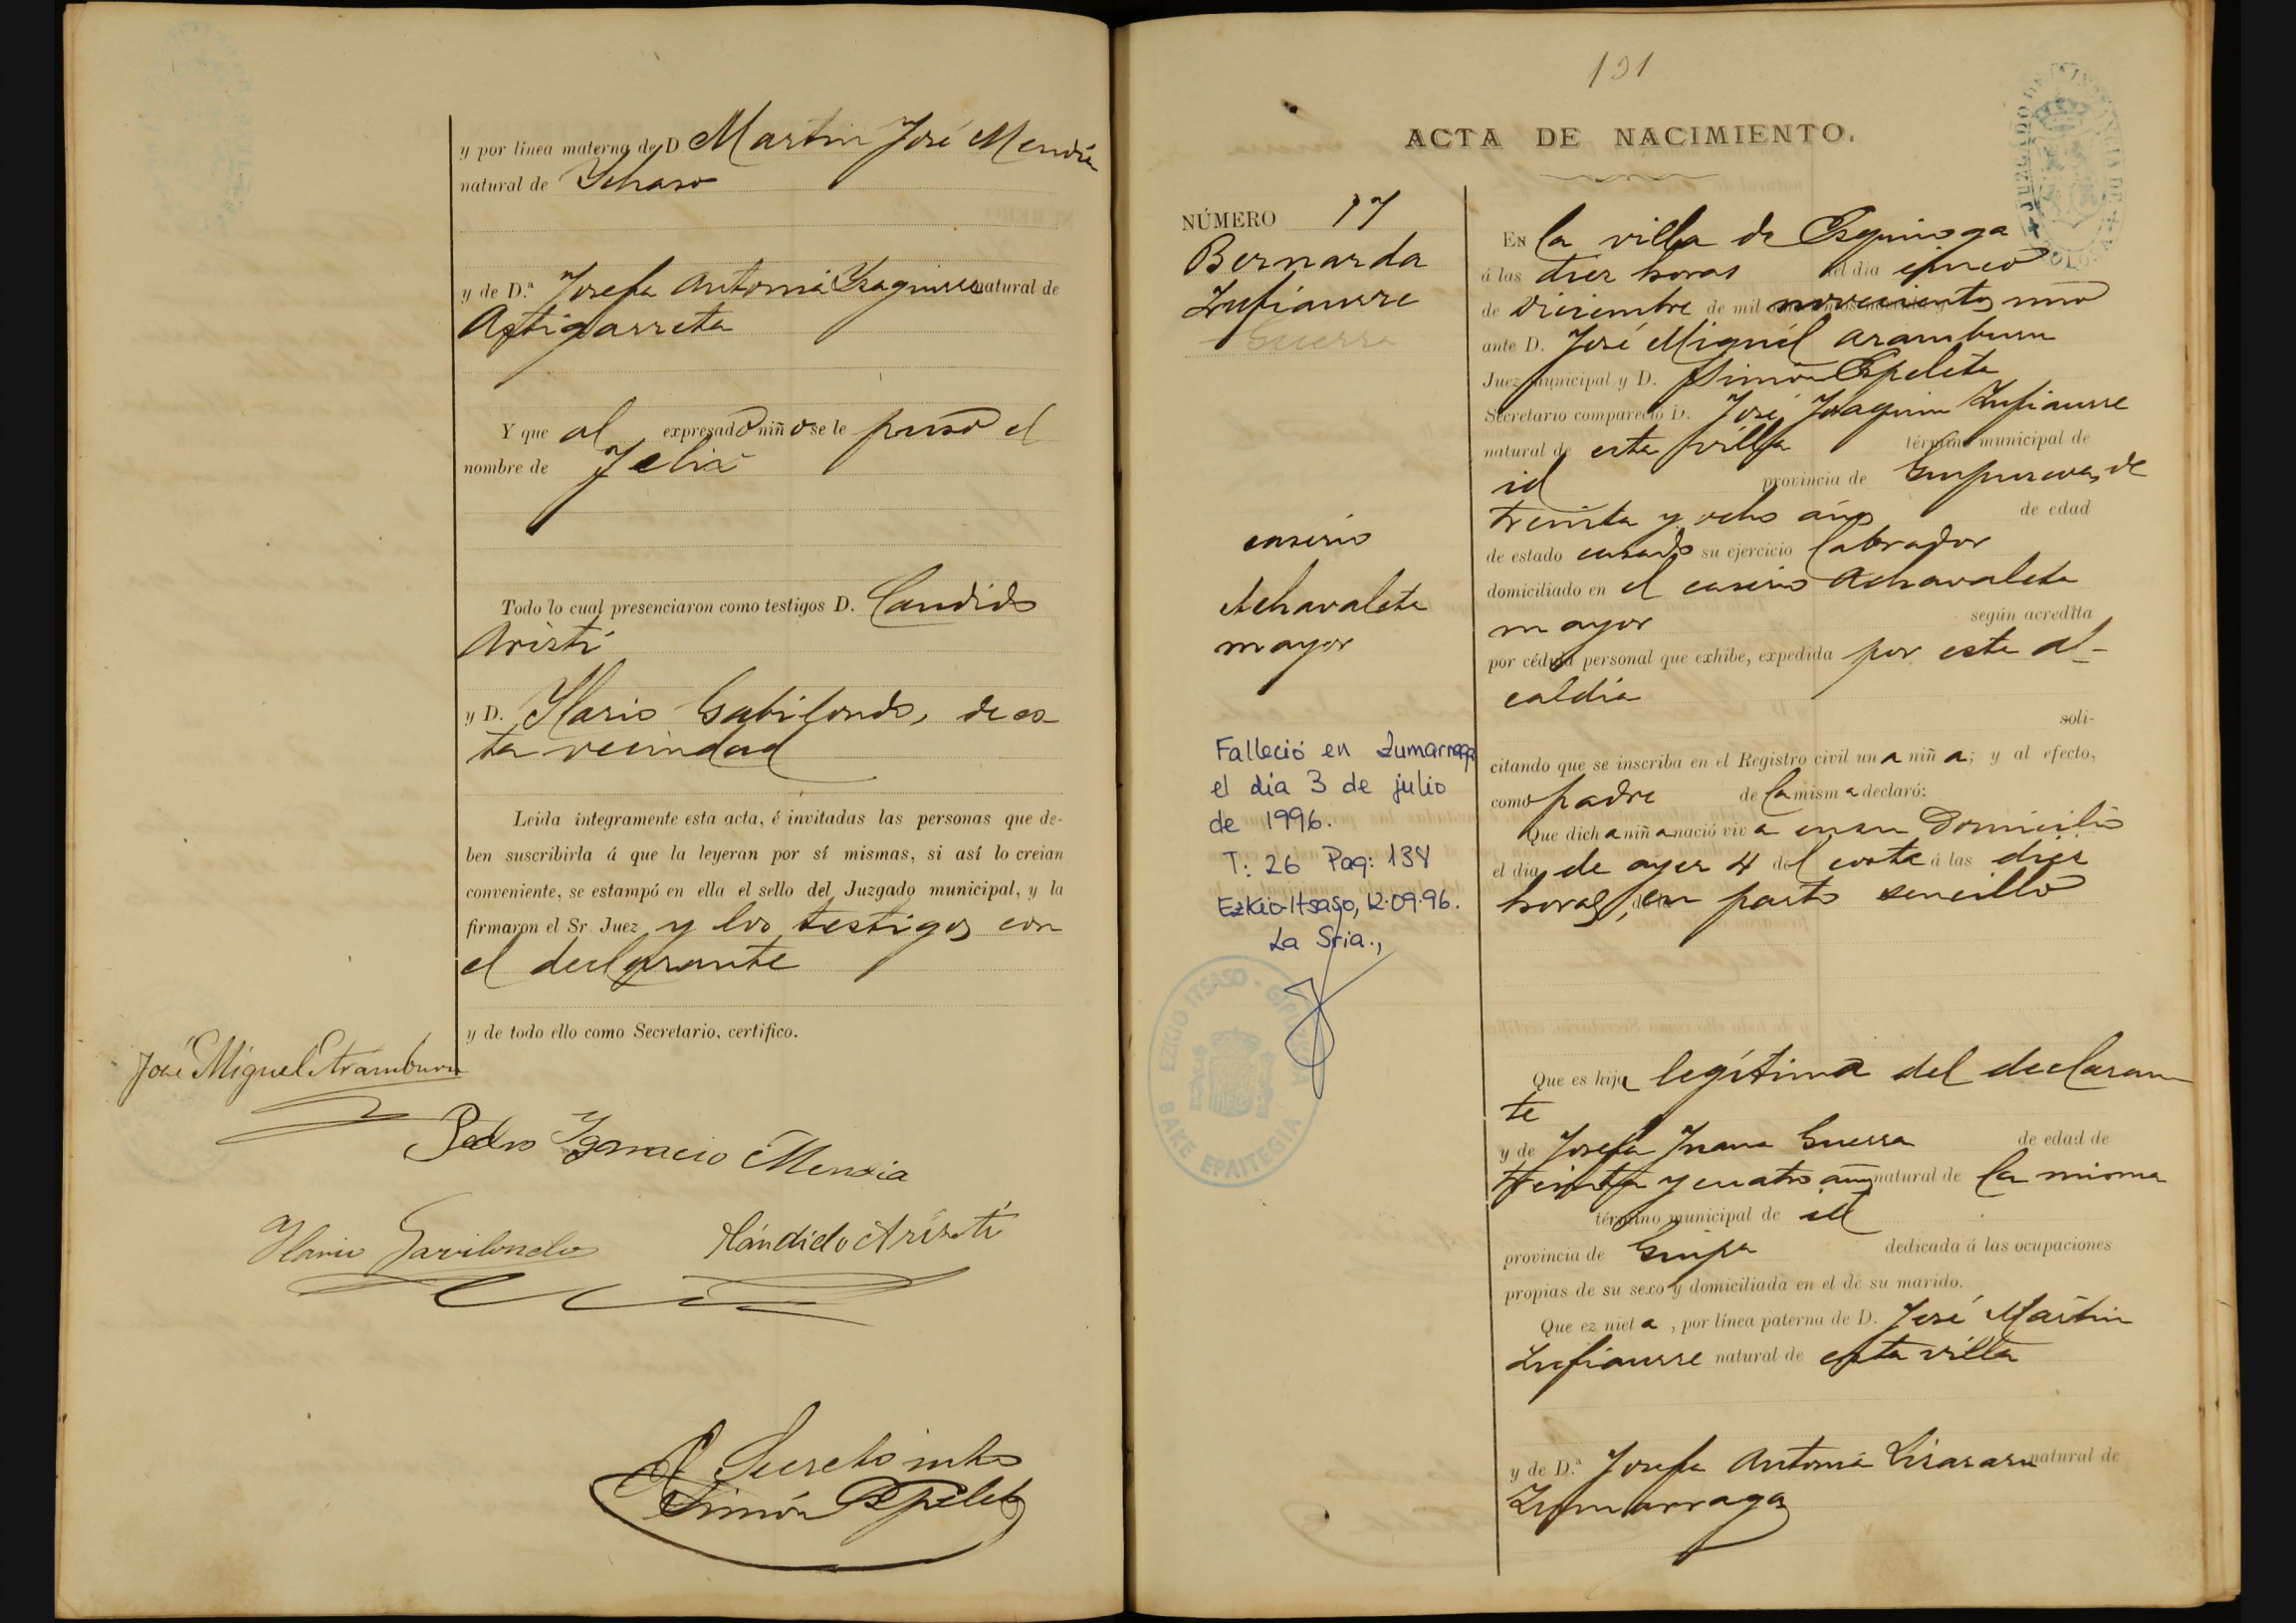 y por línea materna de D. Martin José Mendia
natural de Ychaso
y de D.ª Josefa Antonia Yzaguirre natural de
Astigarreta
Y que al expresado niño se le puso el
nombre de Felix
Todo lo cual presenciaron como testigos D. Candido
Aristi
y D. Ylario Gabilondo, de es
ta vecindad
Leida íntegramente esta acta, é invitadas las personas que de-
ben suscribirla á que la leyeran por sí mismas, si así lo creían
conveniente, se estampó en ella el sello del Juzgado municipal, y la
firmaron el Sr. Juez y los testigos con
el declarante
y de todo ello como Secretario, certifico.
José Miguel Aramburu
Pedro Ygnacio Mendia
Ylario Gavilondo Cándido Aristi
Simón Espeleta
191
ACTA DE NACIMIENTO.
NÚMERO 17
Bernarda
Zufiaurre
Guerra
caserio
Achavaleta
mayor
Falleció en Zumarraga
el día 3 de julio
de 1996.
T: 26 Pag: 138
Ezkio-Itsaso, 12.09.96.
La Sria.,
EZKIO ITSASO - GIPUZKOA
BAKE EPAITEGIA
En la villa de Ezquioga
á las diez horas del dia cinco
de Diciembre de mil novecientos uno
ante D. José Miguel Aramburu
Juez municipal y D. Simon Espeleta
Secretario compareció D. José Joaquin Zufiaurre
natural de esta villa término municipal de
id provincia de Guipuzcoa, de
treinta y ocho años de edad
de estado casado su ejercicio labrador
domiciliado en el caserio Achavaleta
mayor según acredita
por cédula personal que exhibe, expedida por esta al-
caldia
soli-
citando que se inscriba en el Registro civil una niña; y al efecto,
como padre de la misma declaró:
Que dicha niña nació viva en su Domicilio
el dia de ayer 4 del corte á las diez
horas, en parto sencillo
Que es hija legítima del declaran
te
y de Josefa Juana Guerra de edad de
treinta y cuatro años natural de la misma
término municipal de id
provincia de Guipa dedicada á las ocupaciones
propias de su sexo y domiciliada en el de su marido.
Que ez nieta, por línea paterna de D. José Martin
Zufiaurre natural de esta villa
y de D.ª Josefa Antonia Lizarazu natural de
Zumarraga